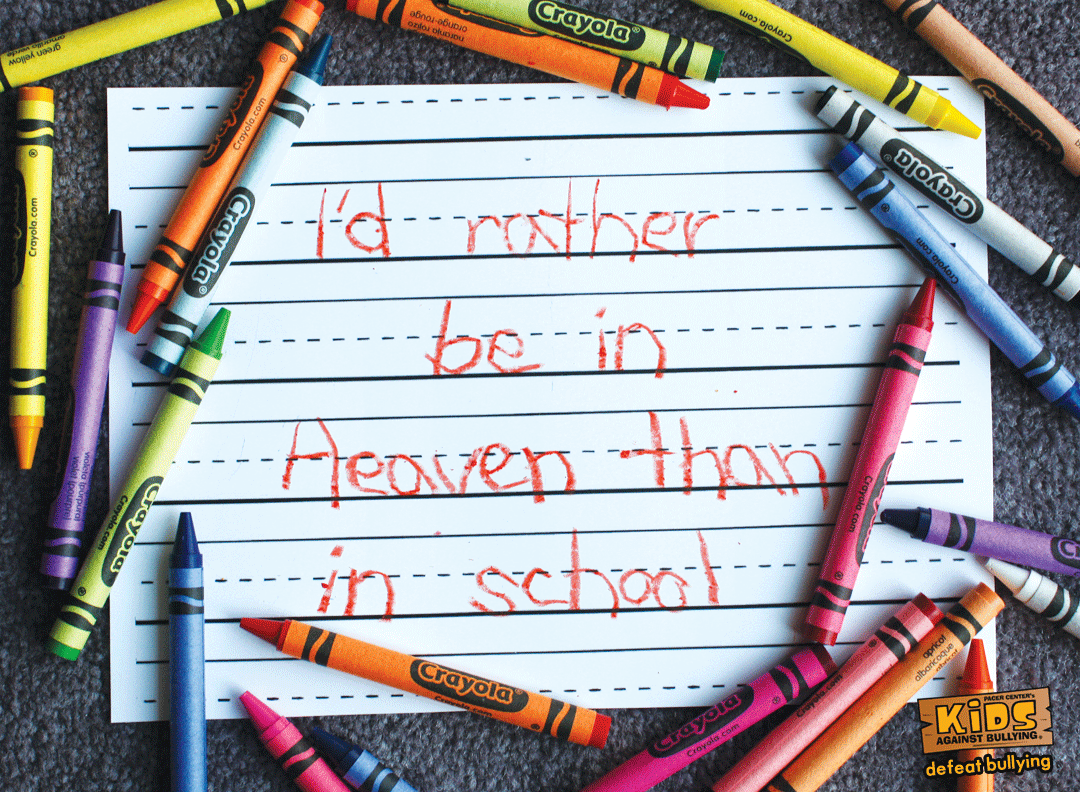 green yellow
amarillo verde
Crayola
Crayola.com
orange-rouge
naranja rojizo
Crayola
Crayola.com
Crayola
Crayola.com
Crayola
Crayola.com
I'd rather
be in
Heaven than
in school
Crayola
violeta (púrpura)
Crayola
Crayola.com
Crayola.com
Crayola
Crayola.com
Crayola
Crayola.com
Crayola.com
apricot
albaricoque
abricot
PACER CENTER'S
KiDS
AGAINST BULLYING®
defeat bullying